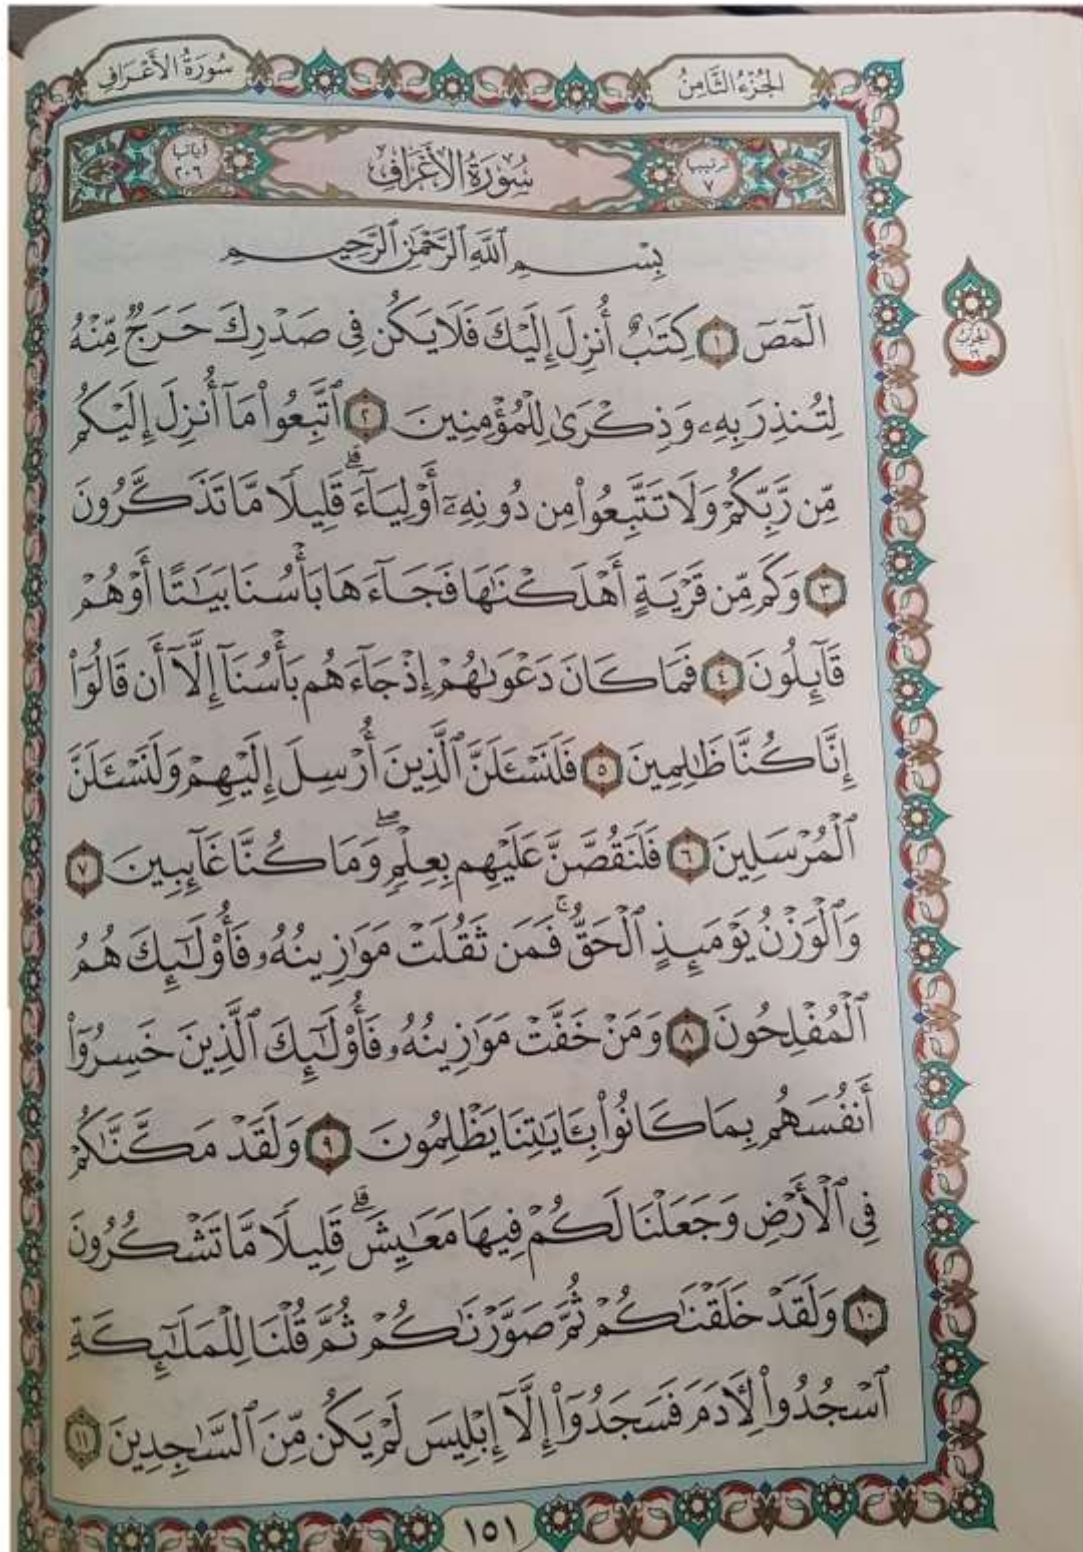 الجُزْءُ الثَّامِنُ
سُورَةُ الأَعْرَافِ
ترتيبها ٧
سُورَةُ الأَعْرَافِ
آياتها ٢٠٦
بِسْمِ ٱللَّهِ ٱلرَّحْمَٰنِ ٱلرَّحِيمِ
الٓمٓصٓ ١ كِتَٰبٌ أُنزِلَ إِلَيْكَ فَلَا يَكُن فِي صَدْرِكَ حَرَجٌ مِّنْهُ
الحزب ١٦
لِتُنذِرَ بِهِۦ وَذِكْرَىٰ لِلْمُؤْمِنِينَ ٢ ٱتَّبِعُوا۟ مَآ أُنزِلَ إِلَيْكُم
مِّن رَّبِّكُمْ وَلَا تَتَّبِعُوا۟ مِن دُونِهِۦٓ أَوْلِيَآءَ ۗ قَلِيلًا مَّا تَذَكَّرُونَ
٣ وَكَم مِّن قَرْيَةٍ أَهْلَكْنَٰهَا فَجَآءَهَا بَأْسُنَا بَيَٰتًا أَوْ هُمْ
قَآئِلُونَ ٤ فَمَا كَانَ دَعْوَىٰهُمْ إِذْ جَآءَهُم بَأْسُنَآ إِلَّآ أَن قَالُوٓا۟
إِنَّا كُنَّا ظَٰلِمِينَ ٥ فَلَنَسْـَٔلَنَّ ٱلَّذِينَ أُرْسِلَ إِلَيْهِمْ وَلَنَسْـَٔلَنَّ
ٱلْمُرْسَلِينَ ٦ فَلَنَقُصَّنَّ عَلَيْهِم بِعِلْمٍ ۖ وَمَا كُنَّا غَآئِبِينَ ٧
وَٱلْوَزْنُ يَوْمَئِذٍ ٱلْحَقُّ ۚ فَمَن ثَقُلَتْ مَوَٰزِينُهُۥ فَأُو۟لَٰٓئِكَ هُمُ
ٱلْمُفْلِحُونَ ٨ وَمَنْ خَفَّتْ مَوَٰزِينُهُۥ فَأُو۟لَٰٓئِكَ ٱلَّذِينَ خَسِرُوٓا۟
أَنفُسَهُم بِمَا كَانُوا۟ بِـَٔايَٰتِنَا يَظْلِمُونَ ٩ وَلَقَدْ مَكَّنَّٰكُمْ
فِي ٱلْأَرْضِ وَجَعَلْنَا لَكُمْ فِيهَا مَعَٰيِشَ ۗ قَلِيلًا مَّا تَشْكُرُونَ
١٠ وَلَقَدْ خَلَقْنَٰكُمْ ثُمَّ صَوَّرْنَٰكُمْ ثُمَّ قُلْنَا لِلْمَلَٰٓئِكَةِ
ٱسْجُدُوا۟ لِـَٔادَمَ فَسَجَدُوٓا۟ إِلَّآ إِبْلِيسَ لَمْ يَكُن مِّنَ ٱلسَّٰجِدِينَ ١١
١٥١